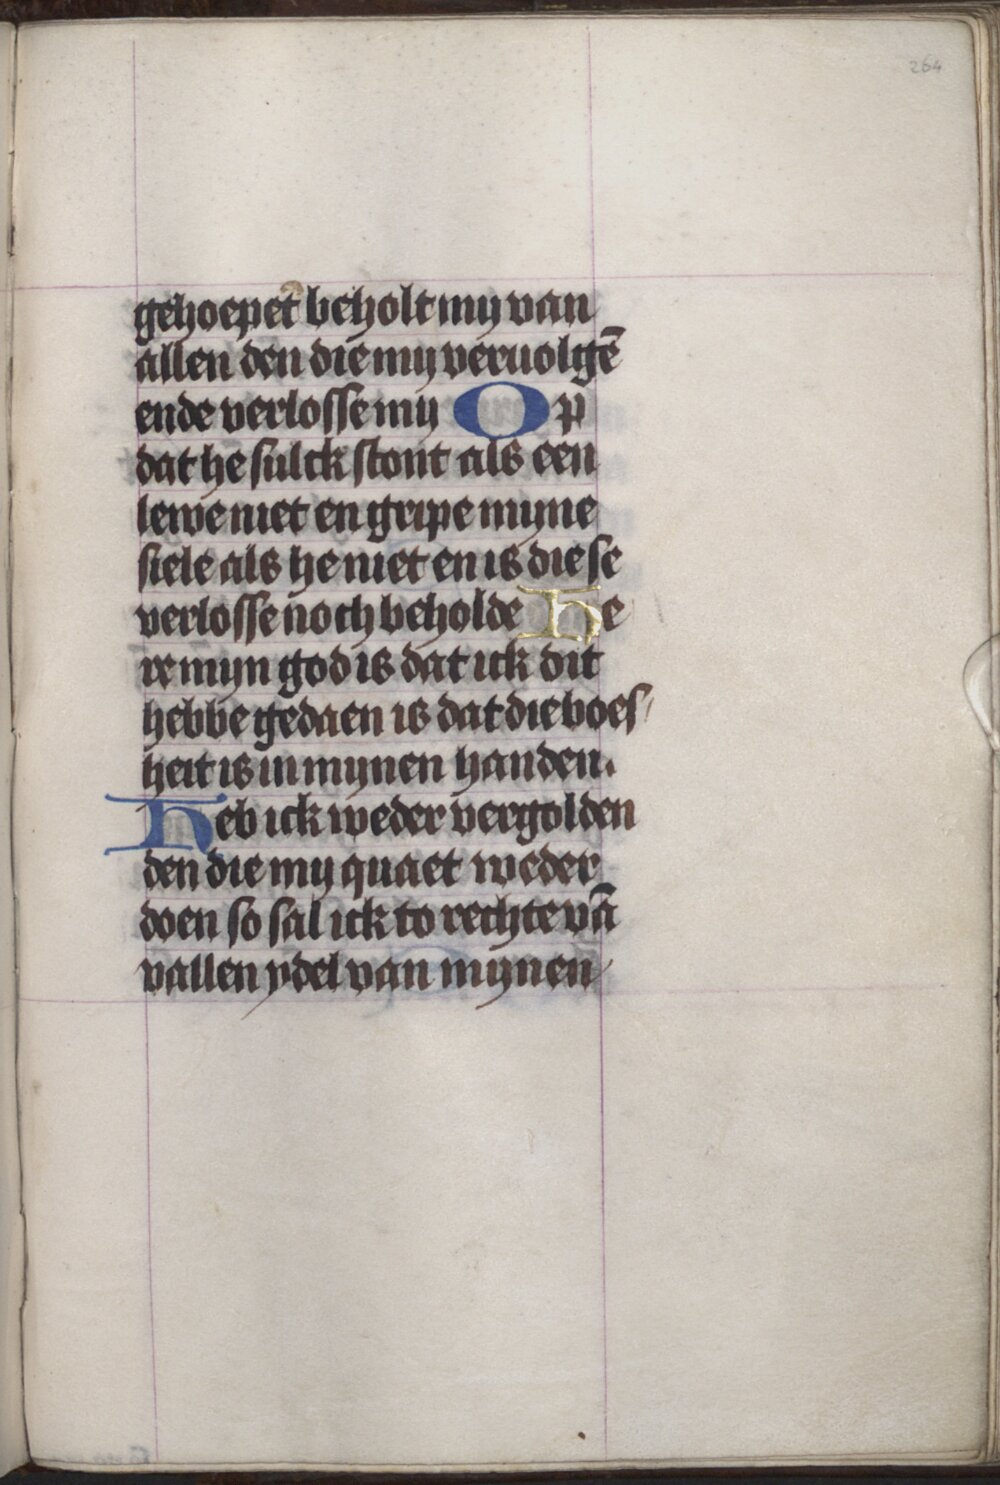 264
gehoepet beholt my van
allen den die my veruolgē
ende verlosse my Op
dat he sulck stont als een
lewe niet en gripe myne
siele als he niet en is die se
verlosse noch beholde He
re myn god is dat ick dit
hebbe gedaen is dat die boes/
heit is in mynen handen.
Heb ick weder vergolden
den die my quaet weder
doen so sal ick to rechte vā
vallen ydel van mynen